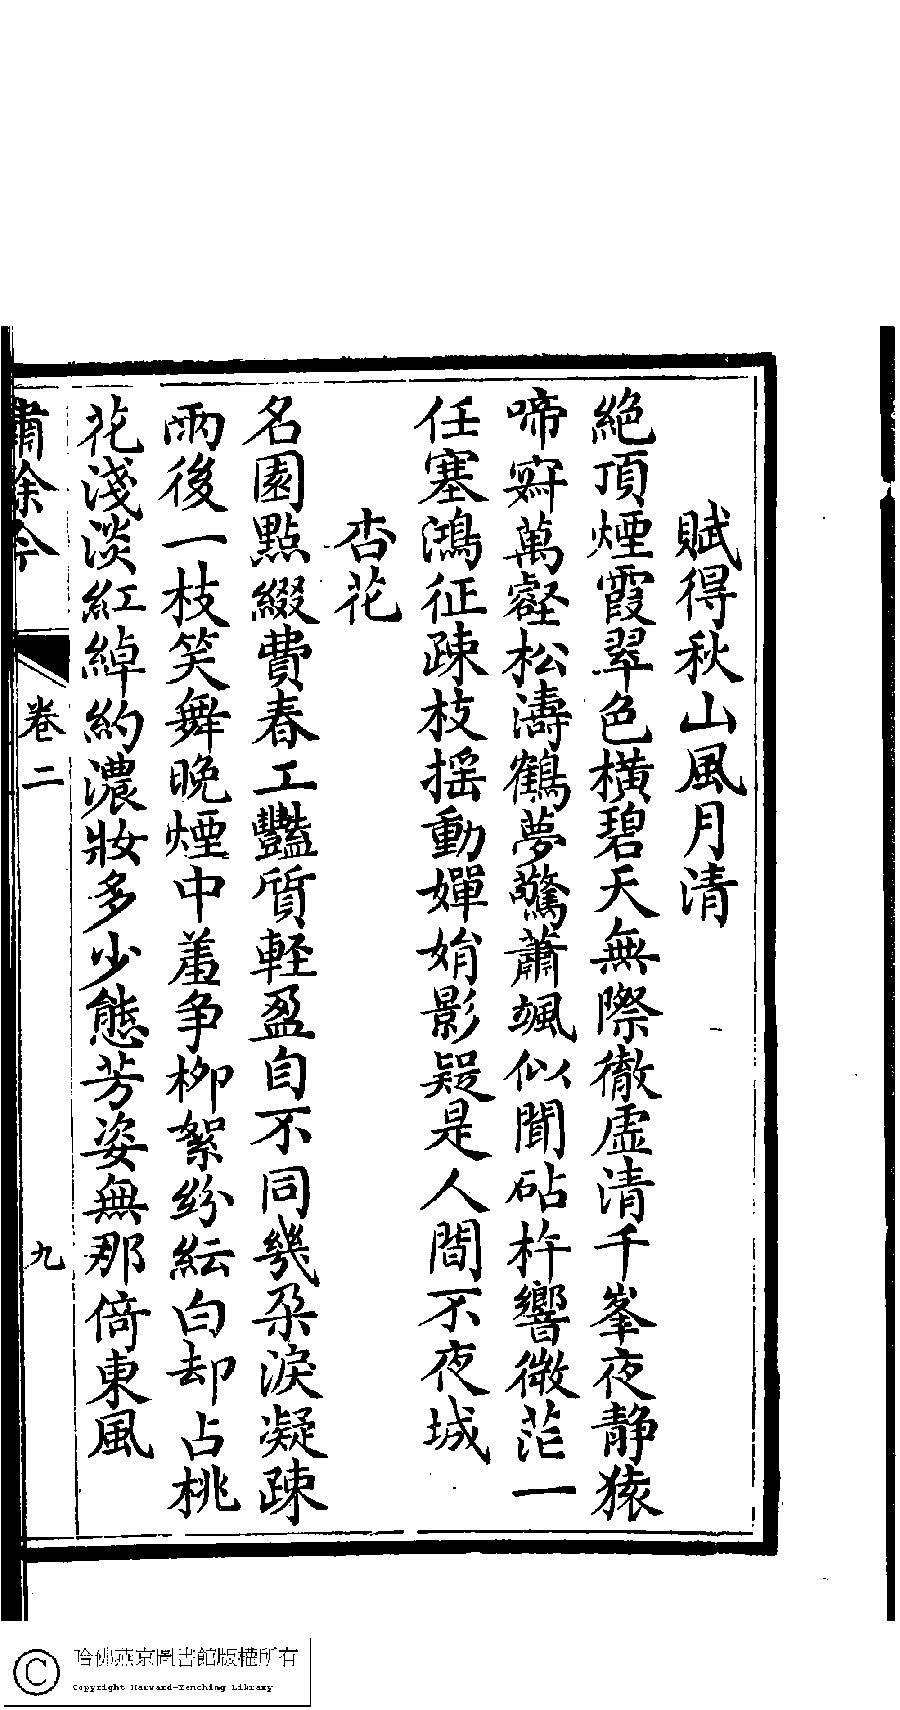 賦得秋山風月清
絶頂煙霞翠色橫碧天無際徹虛清千峯夜靜猿
啼寂萬壑松濤鶴夢驚蕭颯似聞砧杵響微茫一
任塞鴻征疎枝摇動嬋娟影疑是人間不夜城
杏花
名園點綴費春工豔質輕盈自不同幾朶淚凝疎
雨後一枝笑舞晚煙中羞争栁絮紛紜白却占桃
花淺淡紅綽約濃妝多少態芳姿無那倚東風
繡餘今
卷二
九
哈佛燕京圖書館版權所有
Copyright Harvard-Yenching Library